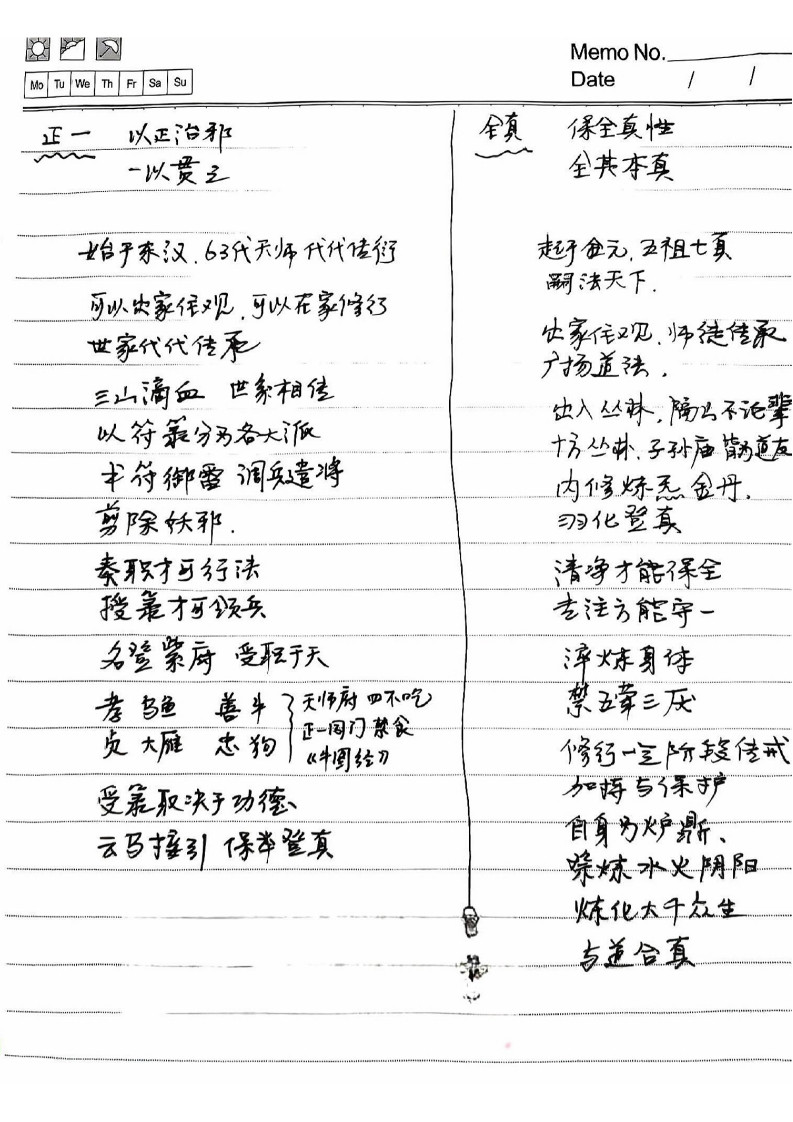 Memo No.
Mo Tu We Th Fr Sa Su
Date / /
正一 以正治邪
一以贯之
始于东汉、63代天师代代传衍
可以出家住观、可以在家修行
世家代代传承
三山滴血 世家相传
以符箓分为各大派
书符御雷 调兵遣将
剪除妖邪.
奏职才可行法
授箓才可领兵
名登紫府 受职于天
孝 乌鱼 善 牛
贞 大雁 忠 狗
天师府 四不吃
正一同门禁食
《牛图经》
受箓取决于功德、
云马接引 保举登真
全真 保全真性
全其本真
起于金元、五祖七真
嗣法天下.
出家住观、师徒传承
广扬道法.
出入丛林、隔山不论辈
十方丛林、子孙庙 皆为道友
内修炼炁 金丹、
羽化登真
清净才能保全
专注方能守一
淬炼身体
禁五荤三厌
修行一定阶段传戒
加持与保护
自身为炉鼎、
炼水火阴阳
炼化大千众生
与道合真